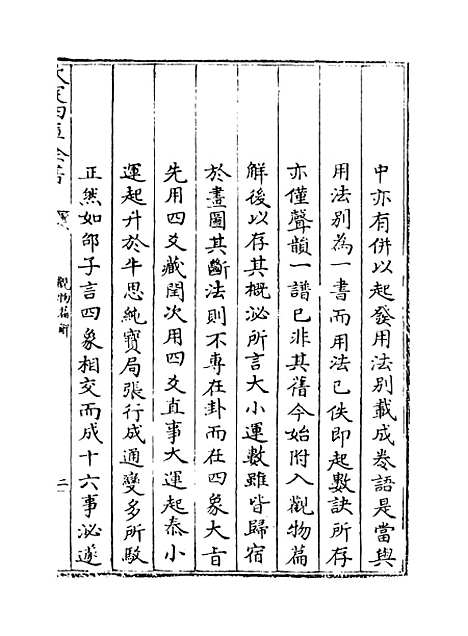 中亦有併以起發用法別載成卷語是當與
用法別為一書而用法已佚即起數訣所存
亦僅聲韻一譜已非其舊今始附入觀物篇
解後以存其概泌所言大小運數雖皆歸宿
於畫圖其斷法則不專在卦而在四象大旨
先用四爻藏閏次用四爻直事大運起泰小
運起升於牛思純寶局張行成通變多所駁
正然如邵子言四象相交而成十六事泌遂
欽定四庫全書
觀物篇解
二